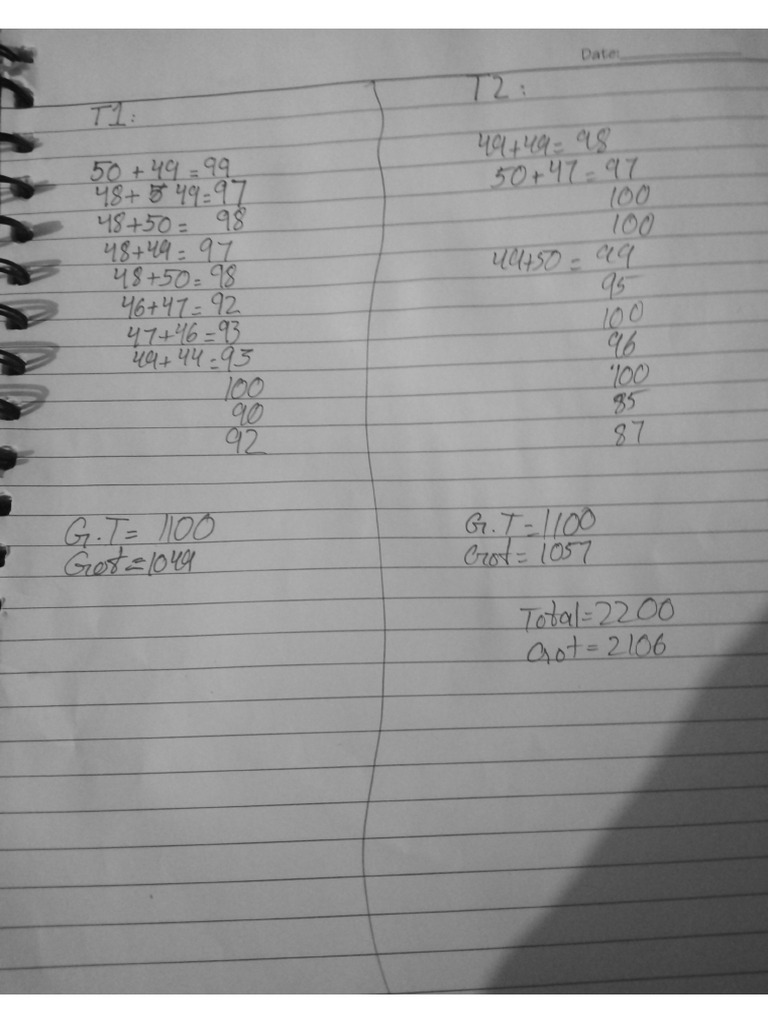 Date:
T1:
50 + 49 = 99
48 + 49 = 97
48+50 = 98
48+49 = 97
48+50 = 98
46+47 = 92
47+46 = 93
49+44 = 93
100
90
92
G.T = 1100
Got = 1049
T2:
49+49 = 98
50+47 = 97
100
100
49+50 = 99
95
100
96
100
85
87
G.T = 1100
Got = 1057
Total = 2200
Got = 2106